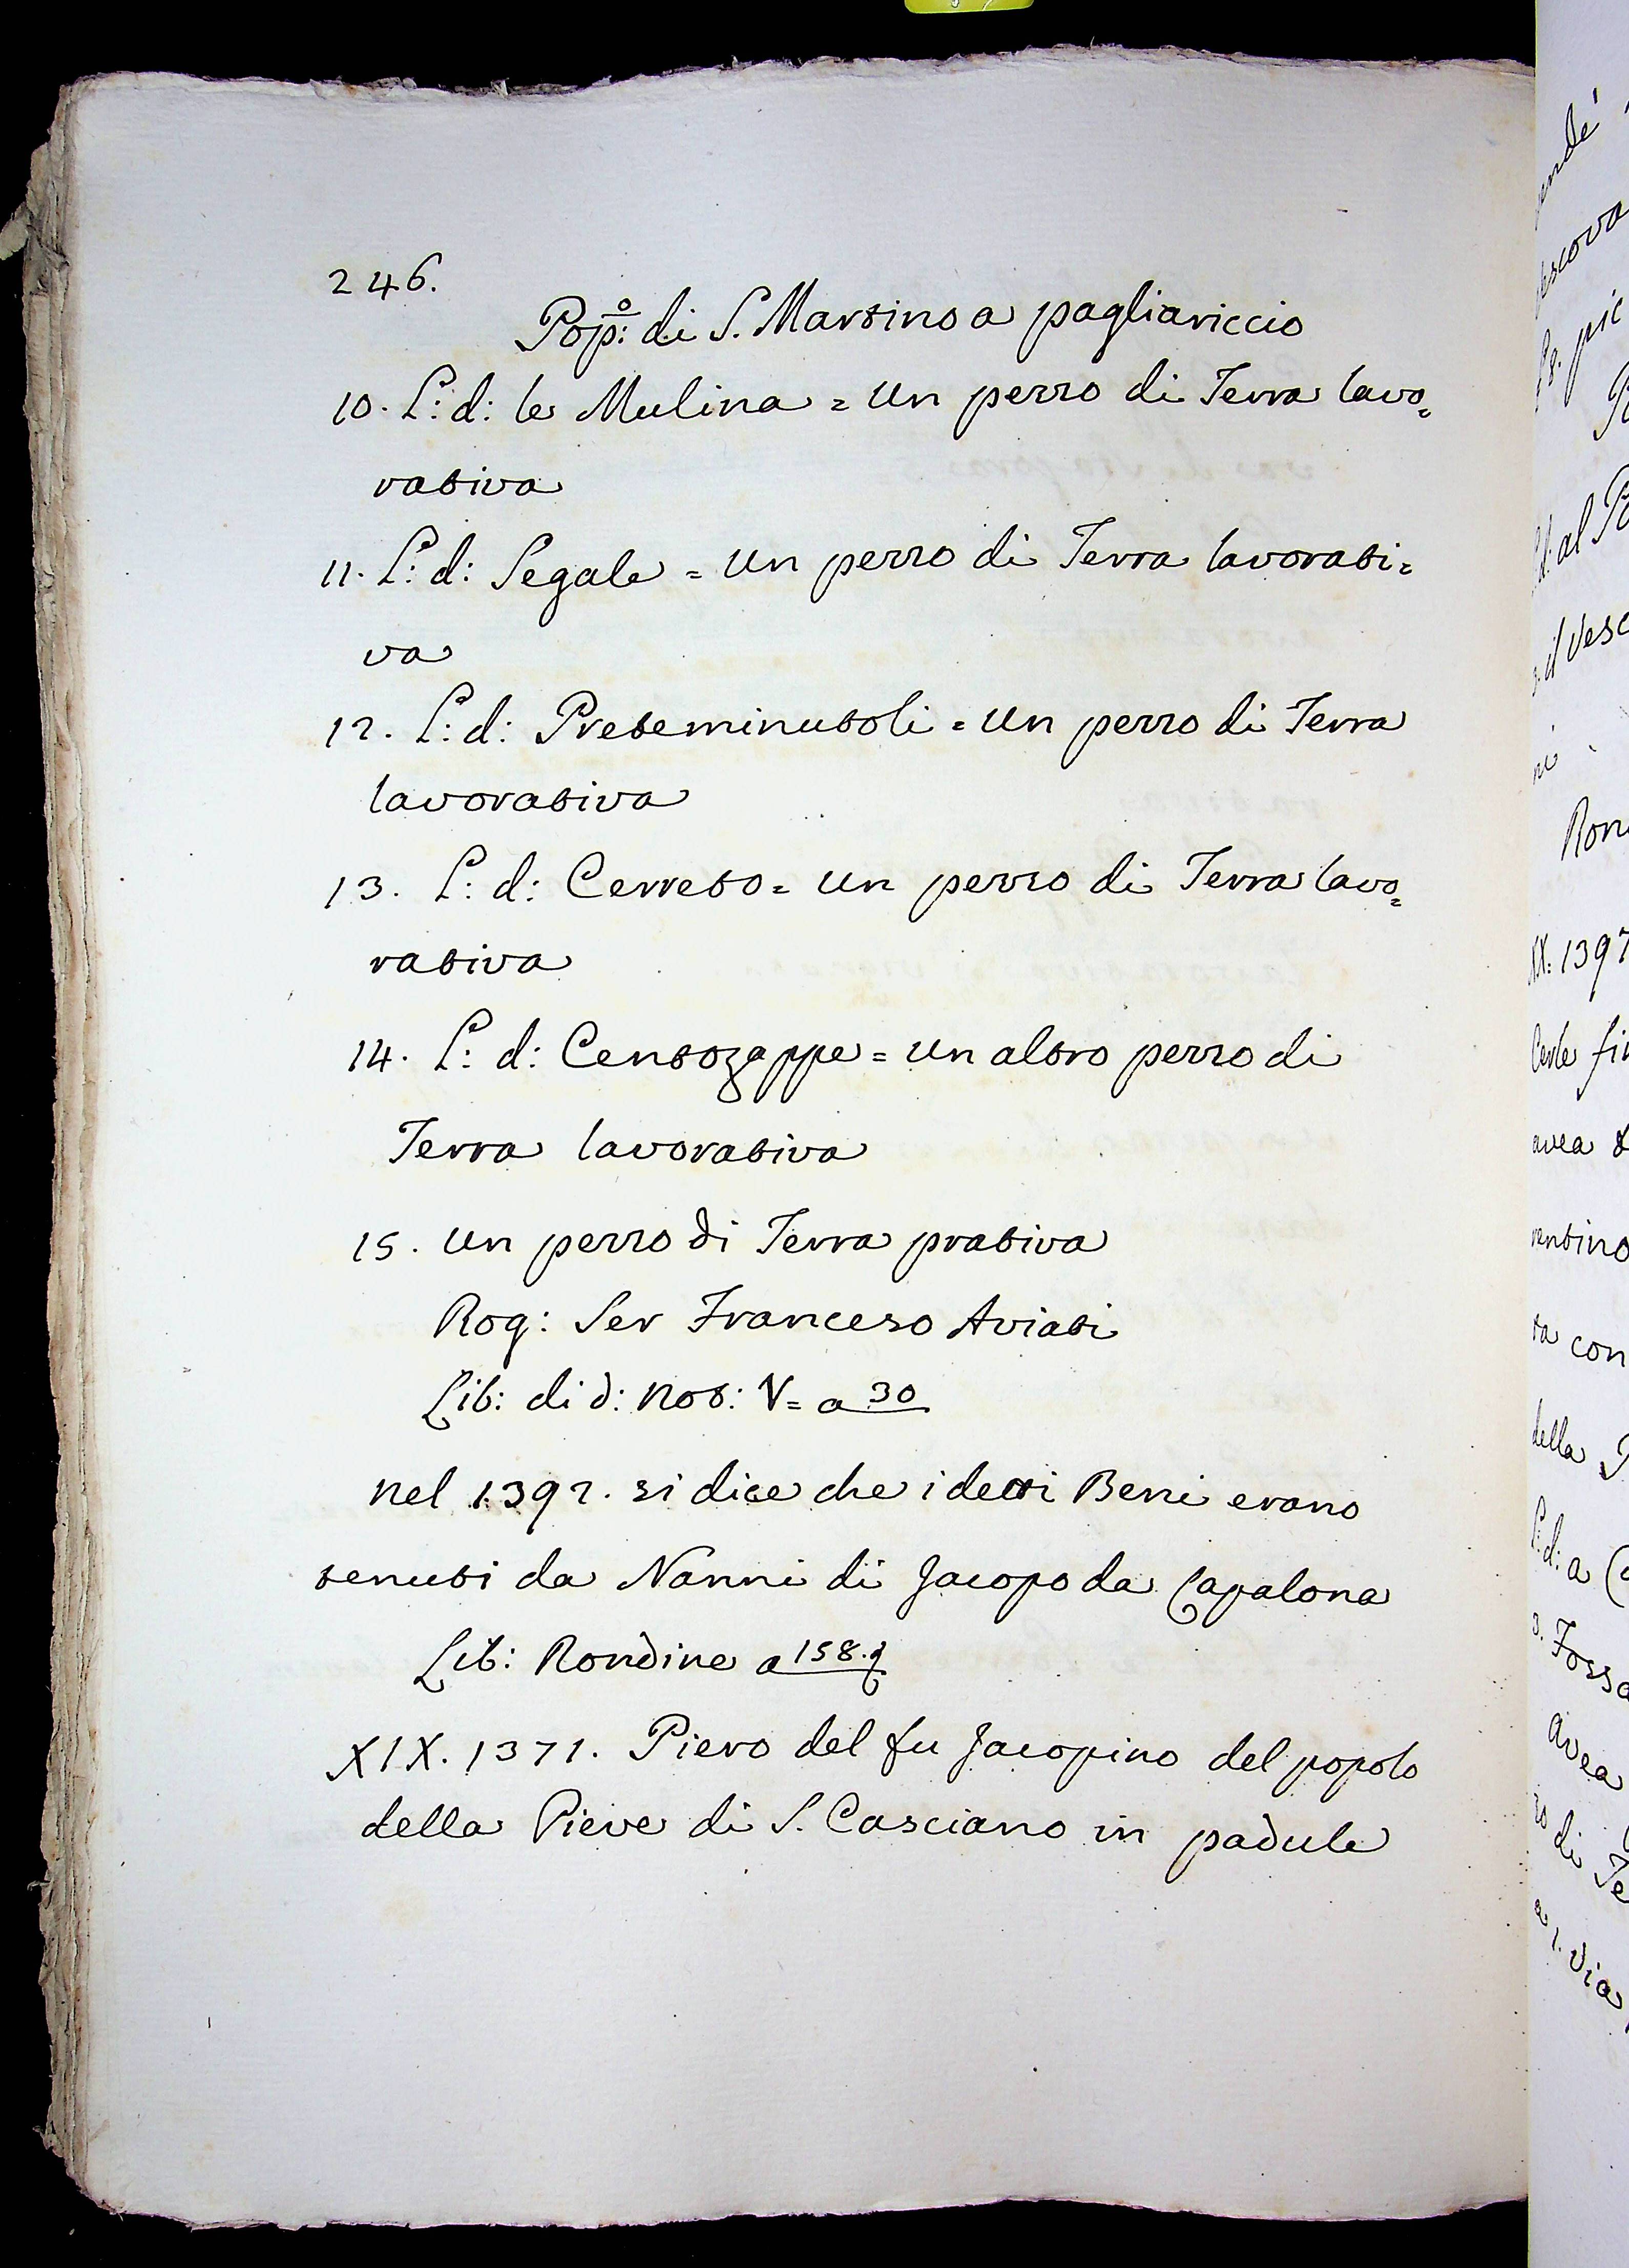 246.
Pop:º di S. Martino a pagliariccio
10. L: d: le Mulina = Un pezzo di Terra lavo=
rativa
11. L: d: Segale = Un pezzo di Terra lavorati=
va
12. L: d: Preteminutoli = Un pezzo di Terra
lavorativa
13. L: d: Cerreto = Un pezzo di Terra lavo=
rativa
14. L: d: Centozappe = Un altro pezzo di
Terra lavorativa
15. Un pezzo di Terra prativa
Rog: Ser Franceso Aviati
Lib: di d: Not: V = a 30
Nel 1392. si dice che i detti Beni erano
tenuti da Nanni di Jacopo da Capalona
Lib: Rondine a 158.
XIX. 1371. Piero del fu Jacopino del popolo
della Pieve di S. Casciano in padule
endé
escova
pic
al Po
il Vesc
ni
Ron
XX: 1397
avea
rentino
ta con
della
L: d: a
3. Fossa
avea
di Te
a 1. Via